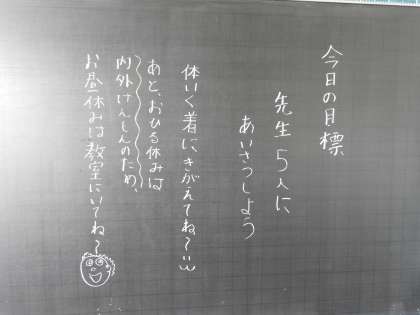 今日の目標
先生5人に
あいさつしよう
体いく着に、きがえてね〜
あと、おひる休みは
内外けんしんのため、
お昼休みは教室にいてね〜